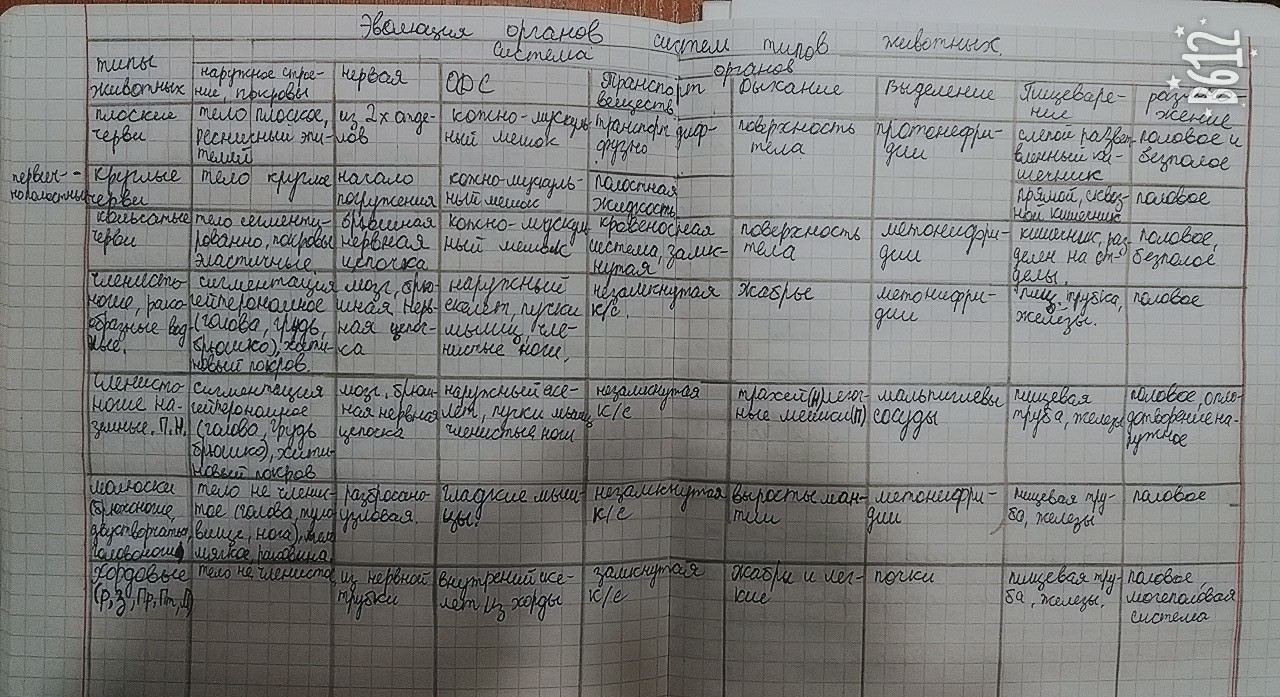 Эволюция органов систем типов животных.
система органов
типы животных
наружное строе-
ние, покровы
нервая
ОДС
Транспорт
веществ
Дыхание
Выделение
Пищеваре-
ние
размно-
жение
плоские
черви
тело плоское,
ресничный эпи-
телий
из 2х отде-
лов
кожно-мускуль-
ный мешок
транспорт диф-
фузно
поверхность
тела
протонефри-
дии
слепой развет-
вленный ки-
шечник
половое и
безполое
первич-
нополостные
круглые
черви
тело круглое
начало
погружения
кожно-мускуль-
ный мешок
полостная
жидкость
прямой, сквоз-
ной кишечник
половое
кольчатые
черви
тело сегменти-
рованно, покровы
эластичные.
брюшная
нервная
цепочка
кожно-мускул
ный мешок
кровеносная
система, замк-
нутая
поверхность
тела
метонефри-
дии
кишечник, раз-
делен на от-
делы.
половое,
безполое
членисто-
ногие, рако-
образные вод
ные.
сигментация
гейперономное
(голова, грудь,
брюшко), хити-
новый покров.
мозг, брю-
шная нерв-
ная цепоч-
ка
наружный
скелет, пучки
мышц, чле-
нистые ноги,
незамкнутая
к/с.
жабры
метонифри-
дии
пищ. трубка,
железы.
половое
членисто-
ногие на-
земные. П.Н.
сигментация
гейперономное
(голова, грудь
брюшко), хити-
новый покров
мозг, брюш-
ная нервная
цепоска
наружный ске-
лет, пучки мышц
членистые ноги
незамкнутая
к/с
трахей(н)легоч-
ные мешки(п)
мальпигиевы
сосуды
пищевая
труба, железы
половое, опло-
дотворение на-
ружное
молюски
(брюхоногие,
двустворчатые,
головоногие)
тело не члени-
тое (голова, туло
вище, нога), тело
мягкое, раковина
разбросано-
узловая.
гладкие мыш-
цы.
незамкнутая
к/с
выросты ман-
тии
метонефри-
дии
пищевая тру-
ба, железы
половое
хордовые
(Р, З, Пр, Пт, Д)
тело не членистое
из нервной
трубки
внутрений ске-
лет из хорды
замкнутая
к/с
жабри и лег-
кие
почки
пищевая тру-
ба, железы.
половое,
мочеполовая
система
B612